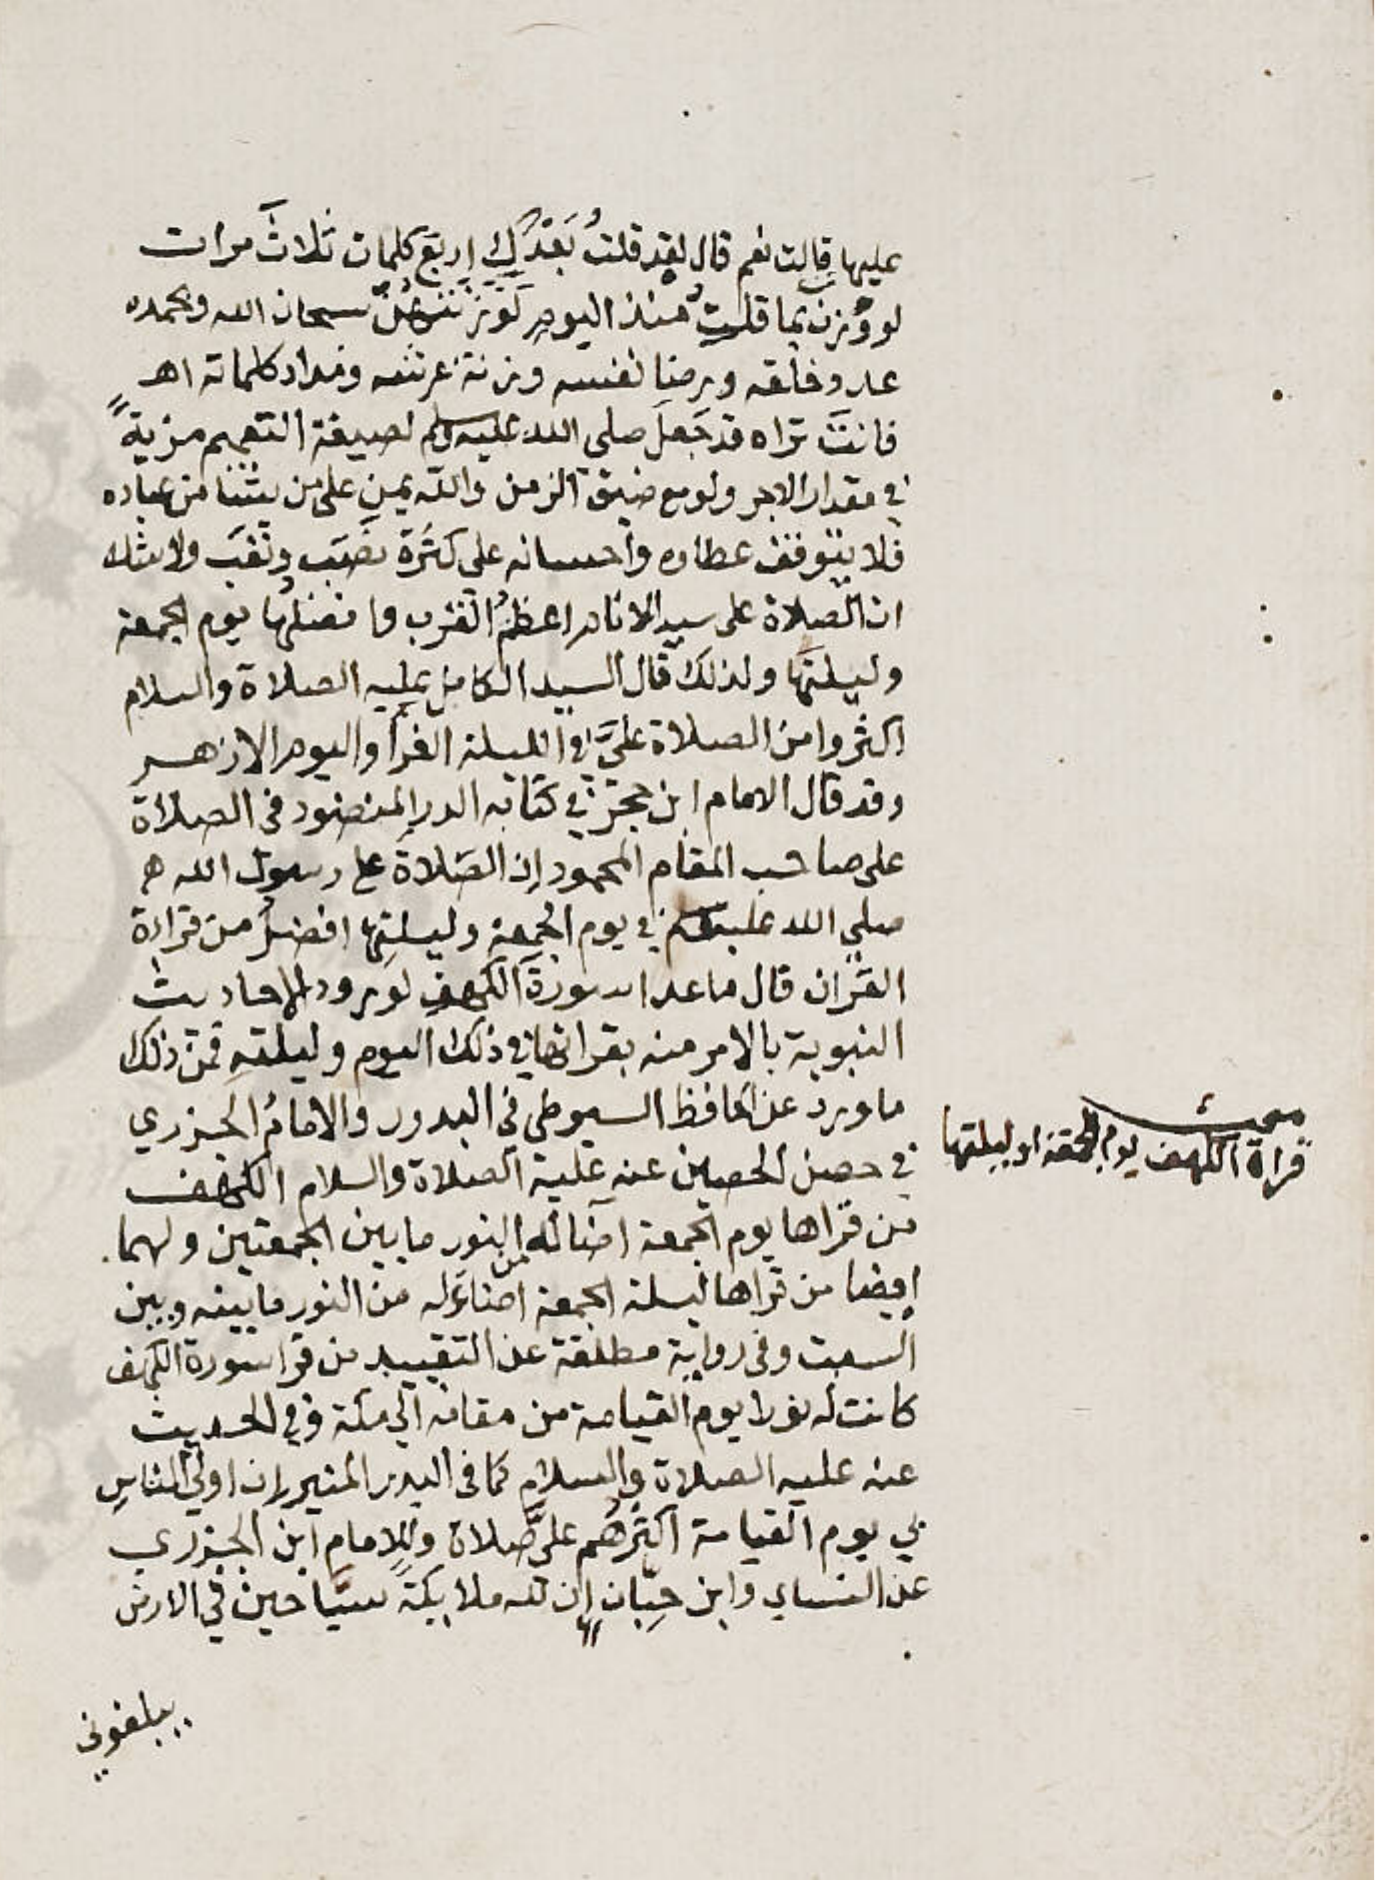 عليها قالت نعم قال لقد قلتُ بَعْدَكِ اربَعَ كلمات ثلاثَ مرات
لو وُزِنت بما قلتِ منذ اليومِ لَوَزَنَتْهُنَّ سبحان الله وبحمده
عدد خلقه ورضا نفسه وزنة عرشه ومداد كلماته اهـ
فانتَ تراه قد جَعلَ صلى الله عليه وسلم لصيغة التعميم مزيةً
في مقدار الاجر ولو مع ضيق الزمن والله يمن على من يشا من عباده
فلا يتوقف عطاوه واحسانه على كثرة نَصَب وتَعَب ولا شك
ان الصلاة على سيد الانام اعظمُ القرب وافضلها يوم الجمعة
وليلتها ولذلك قال السيد الكامل عليه الصلاة والسلام
اكثروا من الصلاة عليَّ في الليلة الغرا واليوم الازهر
وقد قال الامام ابن حجر في كتابه الدر المنضود في الصلاة
على صاحب المقام المحمود ان الصلاة على رسول الله
صلى الله عليه وسلم في يوم الجمعة وليلتها افضلُ من قراءة
القران قال ما عدا سورة الكهفِ لورود الاحاديث
النبوية بالامر منه بقراتها في ذلك اليوم وليلته فمن ذلك
ما ورد عن الحافظ السيوطي في البدور والامامُ الجزري
في حصن الحصين عنه عليه الصلاة والسلام الكهف
من قراها يوم الجمعة اضا له من النور ما بين الجمعتين ولهما
ايضا من قراها ليلة الجمعة اضاءَ له من النور ما بينه وبين
السبت وفي رواية مطلقة عن التقييد من قرا سورة الكهف
كانت له نورا يوم القيامة من مقامه الى مكة وفي الحديث
عنه عليه الصلاة والسلام كما في البدر المنير إن اولى الناسِ
بي يوم القيامة اكثرُهُم عليَّ صلاة وللامام ابن الجزري
عن النساي وابن حِبّان إن لله ملايكةً سيَّاحين في الارض
يبلغوني
مبحث
قراة الكهف يوم الجمعة او ليلتها